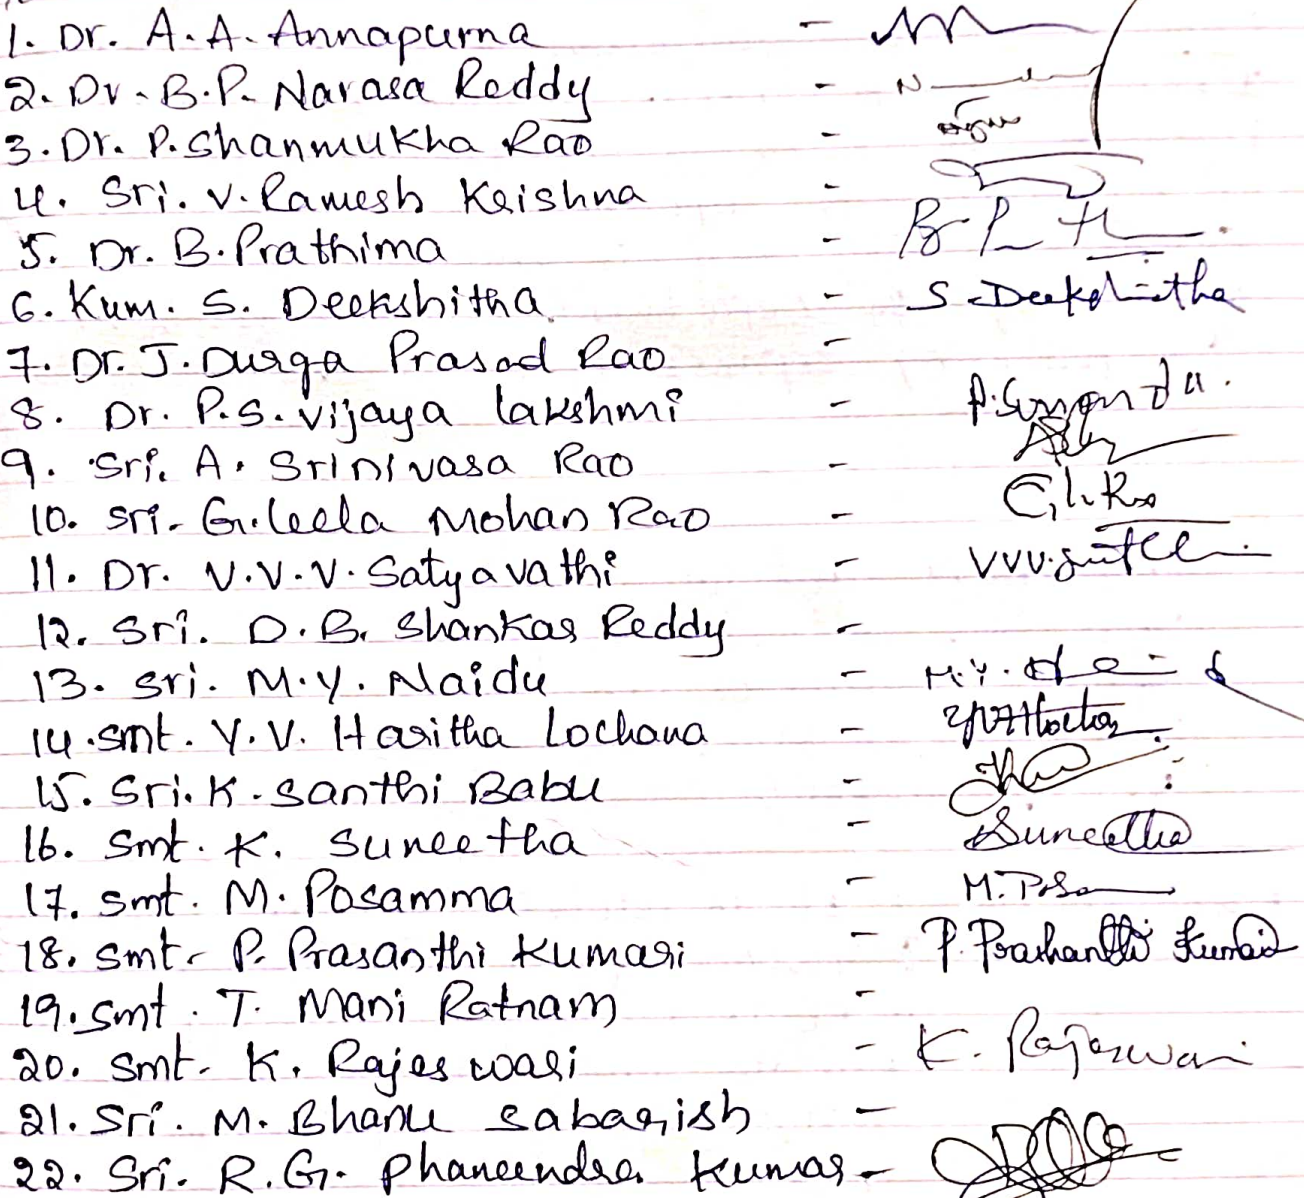 1. Dr. A.A. Annapurna -
2. Dr. B.P. Narasa Reddy - N
3. Dr. P. Shanmukha Rao -
4. Sri. V. Ramesh Krishna -
5. Dr. B. Prathima -
6. Kum. S. Deekshitha - S. Deekshitha
7. Dr. J. Durga Prasad Rao -
8. Dr. P.S. Vijaya lakshmi - P. Sunanda.
9. Sri. A. Srinivasa Rao -
10. Sri. G. Leela Mohan Rao -
11. Dr. V.V.V. Satyavathi -
12. Sri. D.B. Shankar Reddy -
13. Sri. M.Y. Naidu -
14. Smt. Y.V. Haritha Lochana -
15. Sri. K. Santhi Babu -
16. Smt. K. Suneetha - Suneetha
17. Smt. M. Posamma -
18. Smt. P. Prasanthi Kumari - P. Prashanthi Kumari
19. Smt. T. Mani Ratnam -
20. Smt. K. Rajeswari - K. Rajeswari
21. Sri. M. Bhanu Sabarish -
22. Sri. R.G. Phaneendra Kumar -